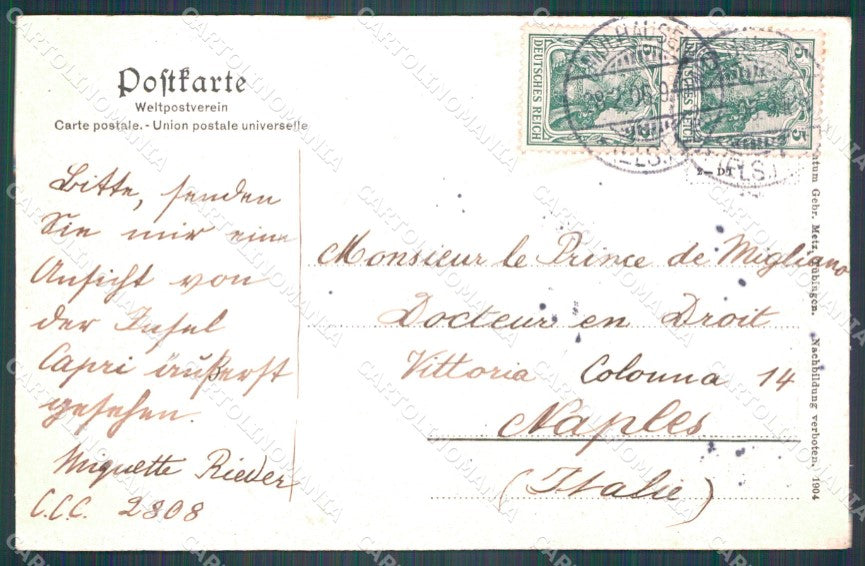 Postkarte
Weltpostverein
Carte postale. - Union postale universelle
Bitte, senden
Sie mir eine
Ansicht von
der Insel
Capri äußerst
gesehen.
Miquette Rieder
C.C.C. 2808
Monsieur le Prince de Migliano
Docteur en Droit
Vittoria Colonna 14
Naples
(Italie)
DEUTSCHES REICH
5
5
5
Gebr. Metz, Tübingen. Nachbildung verboten. 1904
CARTOLINOMANIA